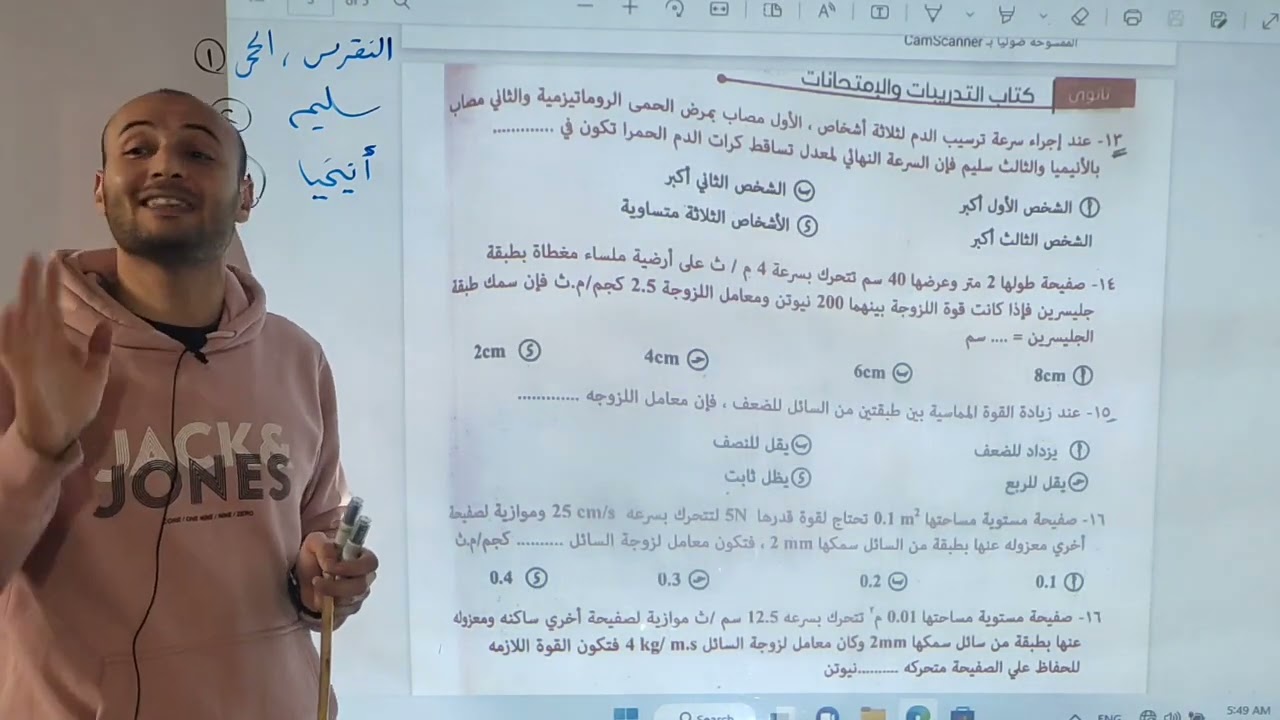 ① النقرس ، الحمى
سليم
أنيميا
of 5
الممسوحة ضوئيا بـ CamScanner
ثانوي
كتاب التدريبات والإمتحانات
١٣- عند إجراء سرعة ترسيب الدم لثلاثة أشخاص ، الأول مصاب بمرض الحمى الروماتيزمية والثاني مصاب
بالأنيميا والثالث سليم فإن السرعة النهائي لمعدل تساقط كرات الدم الحمرا تكون في .............
أ الشخص الأول أكبر ب الشخص الثاني أكبر
الشخص الثالث أكبر د الأشخاص الثلاثة متساوية
١٤- صفيحة طولها 2 متر وعرضها 40 سم تتحرك بسرعة 4 م / ث على أرضية ملساء مغطاة بطبقة
جليسرين فإذا كانت قوة اللزوجة بينهما 200 نيوتن ومعامل اللزوجة 2.5 كجم/م.ث فإن سمك طبقة
الجليسرين = .... سم
أ 8cm ب 6cm ج 4cm د 2cm
١٥- عند زيادة القوة المماسية بين طبقتين من السائل للضعف ، فإن معامل اللزوجه .............
أ يزداد للضعف ب يقل للنصف
ج يقل للربع د يظل ثابت
١٦- صفيحة مستوية مساحتها 0.1 m² تحتاج لقوة قدرها 5N لتتحرك بسرعه 25 cm/s وموازية لصفيحة
أخري معزوله عنها بطبقة من السائل سمكها 2 mm ، فتكون معامل لزوجة السائل .......... كجم/م.ث
أ 0.1 ب 0.2 ج 0.3 د 0.4
١٦- صفيحة مستوية مساحتها 0.01 م٢ تتحرك بسرعه 12.5 سم /ث موازية لصفيحة أخري ساكنه ومعزوله
عنها بطبقة من سائل سمكها 2mm وكان معامل لزوجة السائل 4 kg/ m.s فتكون القوة اللازمه
للحفاظ علي الصفيحة متحركه ..........نيوتن
JACK&
JONES
Search
ENG
5:49 AM